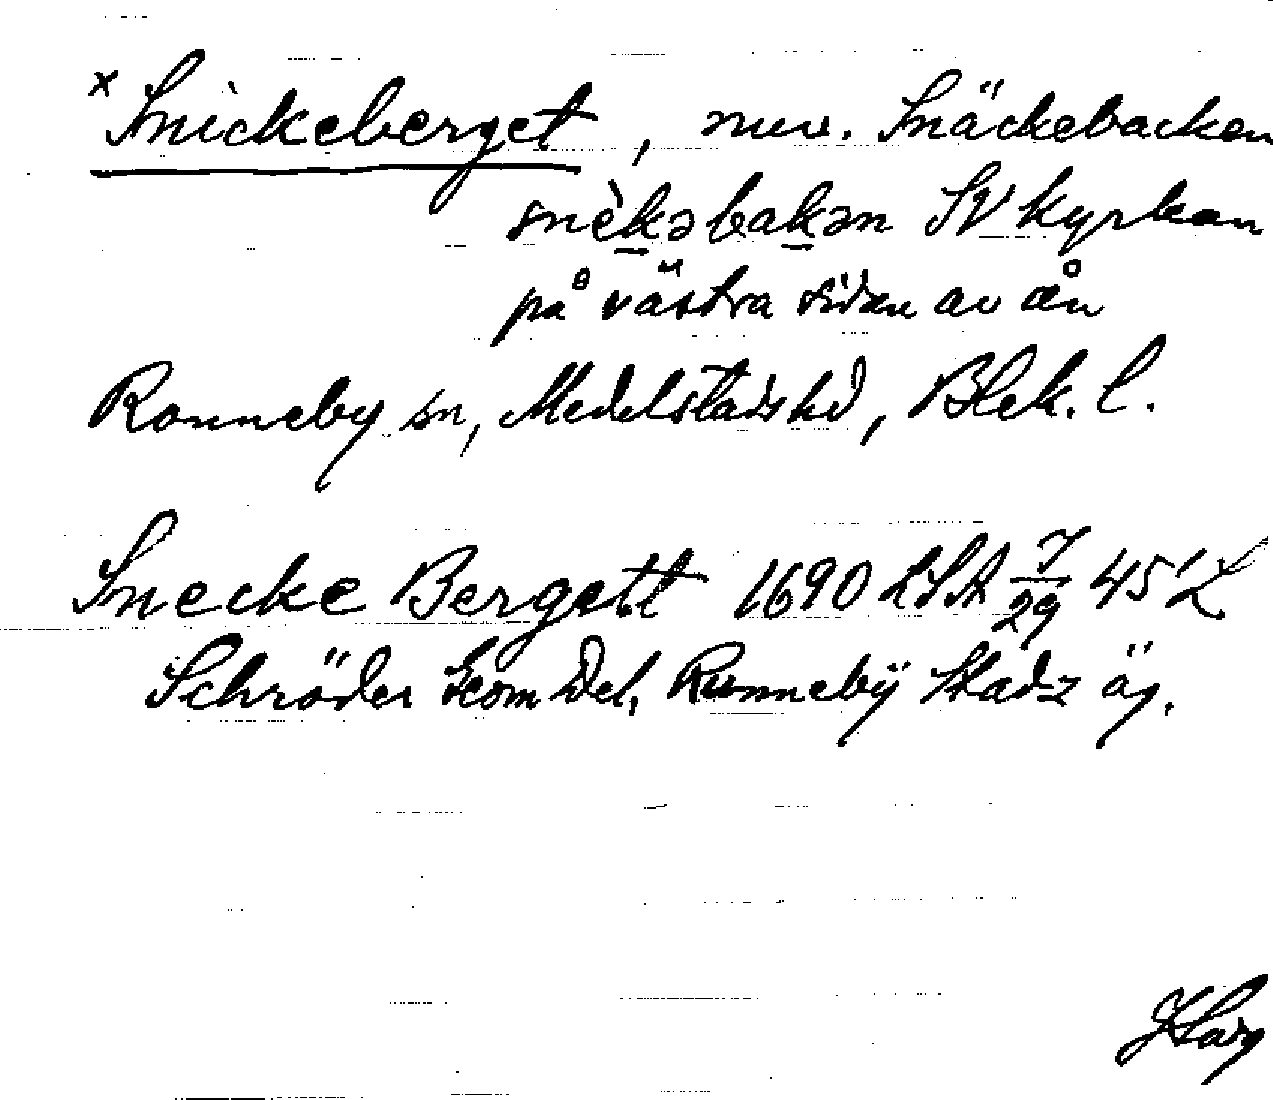 x Snickeberget, nuv. Snäckebacken
snèkəbakən SV kyrkan
på västra sidan av ån
Ronneby sn, Medelstads hd, Blek. l.
Snecke Bergett 1690 LSA 7/29 45'L
Schröder Geom Del, Runnebÿ Stadz äg.